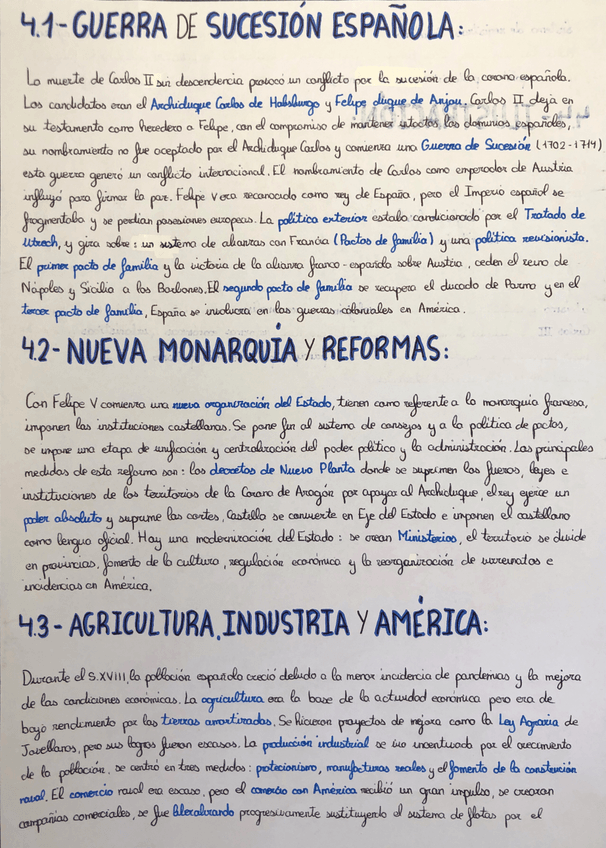 4.1- GUERRA DE SUCESIÓN ESPAÑOLA:
La muerte de Carlos II sin descendencia provocó un conflicto por la sucesión de la corona española.
Los candidatos eran el Archiduque Carlos de Habsburgo y Felipe duque de Anjou. Carlos II deja en
su testamento como heredero a Felipe, con el compromiso de mantener intactos los dominios españoles,
su nombramiento no fue aceptado por el Archiduque Carlos y comienza una Guerra de Sucesión (1702-1714)
esta guerra generó un conflicto internacional. El nombramiento de Carlos como emperador de Austria
influyó para firmar la paz. Felipe V era reconocido como rey de España, pero el Imperio español se
fragmentaba y se perdían posesiones europeas. La política exterior estaba condicionada por el Tratado de
Utrech, y gira sobre: un sistema de alianzas con Francia (Pactos de familia) y una política revisionista.
El primer pacto de familia y la victoria de la alianza franco-española sobre Austria, ceden el reino de
Nápoles y Sicilia a los Borbones. El segundo pacto de familia se recupera el ducado de Parma y en el
tercer pacto de familia, España se involucra en las guerras coloniales en América.
4.2- NUEVA MONARQUÍA Y REFORMAS:
Con Felipe V comienza una nueva organización del Estado, tienen como referente a la monarquía francesa,
imponen las instituciones castellanas. Se pone fin al sistema de consejos y a la política de pactos,
se impone una etapa de unificación y centralización del poder político y la administración. Las principales
medidas de esta reforma son: los decretos de Nueva Planta donde se suprimen los fueros, leyes e
instituciones de los territorios de la Corona de Aragón por apoyar al Archiduque, el rey ejerce un
poder absoluto y suprime las cortes, Castilla se convierte en Eje del Estado e imponen el castellano
como lengua oficial. Hay una modernización del Estado: se crean Ministerios, el territorio se divide
en provincias, fomento de la cultura, regulación económica y la reorganización de virreinatos e
incidencias en América.
4.3- AGRICULTURA, INDUSTRIA Y AMÉRICA:
Durante el S.XVIII, la población española creció debido a la menor incidencia de pandemias y la mejora
de las condiciones económicas. La agricultura era la base de la actividad económica pero era de
bajo rendimiento por las tierras amortizadas. Se hicieron proyectos de mejora como la Ley Agraria de
Jovellanos, pero sus logros fueron escasos. La producción industrial se vio incentivada por el crecimiento
de la población, se centró en tres medidas: proteccionismo, manufacturas reales y el fomento de la construcción
naval. El comercio naval era escaso, pero el comercio con América recibió un gran impulso, se crearon
compañías comerciales, se fue liberalizando progresivamente sustituyendo el sistema de flotas por el